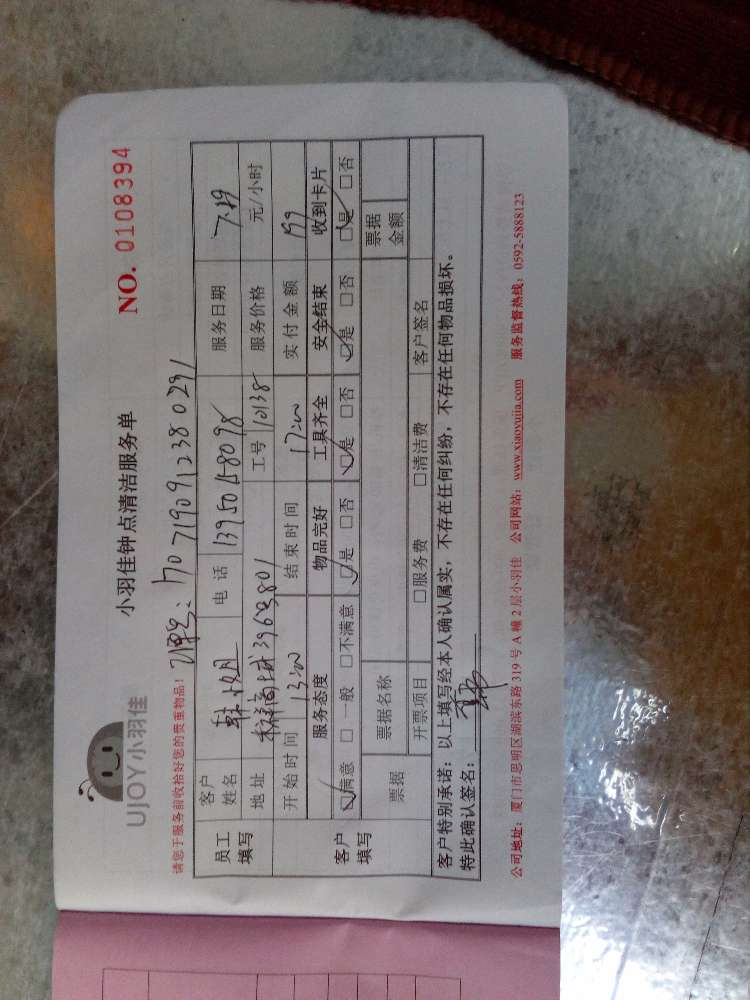 UJOY小羽佳
小羽佳钟点清洁服务单
NO. 0108394
请您于服务前收拾好您的贵重物品！
订单号: 170719091238 0291
员工填写 客户姓名 韩小姐 电话 13950158098 服务日期 7.29
地址 39号801 工号 10138 服务价格 元/小时
开始时间 13:00 结束时间 17:00 实付金额 199
客户填写 服务态度 物品完好 工具齐全 安全结束 收到卡片
☑满意 □一般 □不满意 ☑是 □否 ☑是 □否 ☑是 □否 ☑是 □否
票据 票据名称 票据金额
开票项目 □服务费 □清洁费 客户签名
客户特别承诺：以上填写经本人确认属实，不存在任何纠纷，不存在任何物品损坏。
特此确认签名：
公司地址：厦门市思明区湖滨东路 319 号 A 幢 2 层小羽佳 公司网站：www.xiaoyujia.com 服务监督热线：0592-5888123